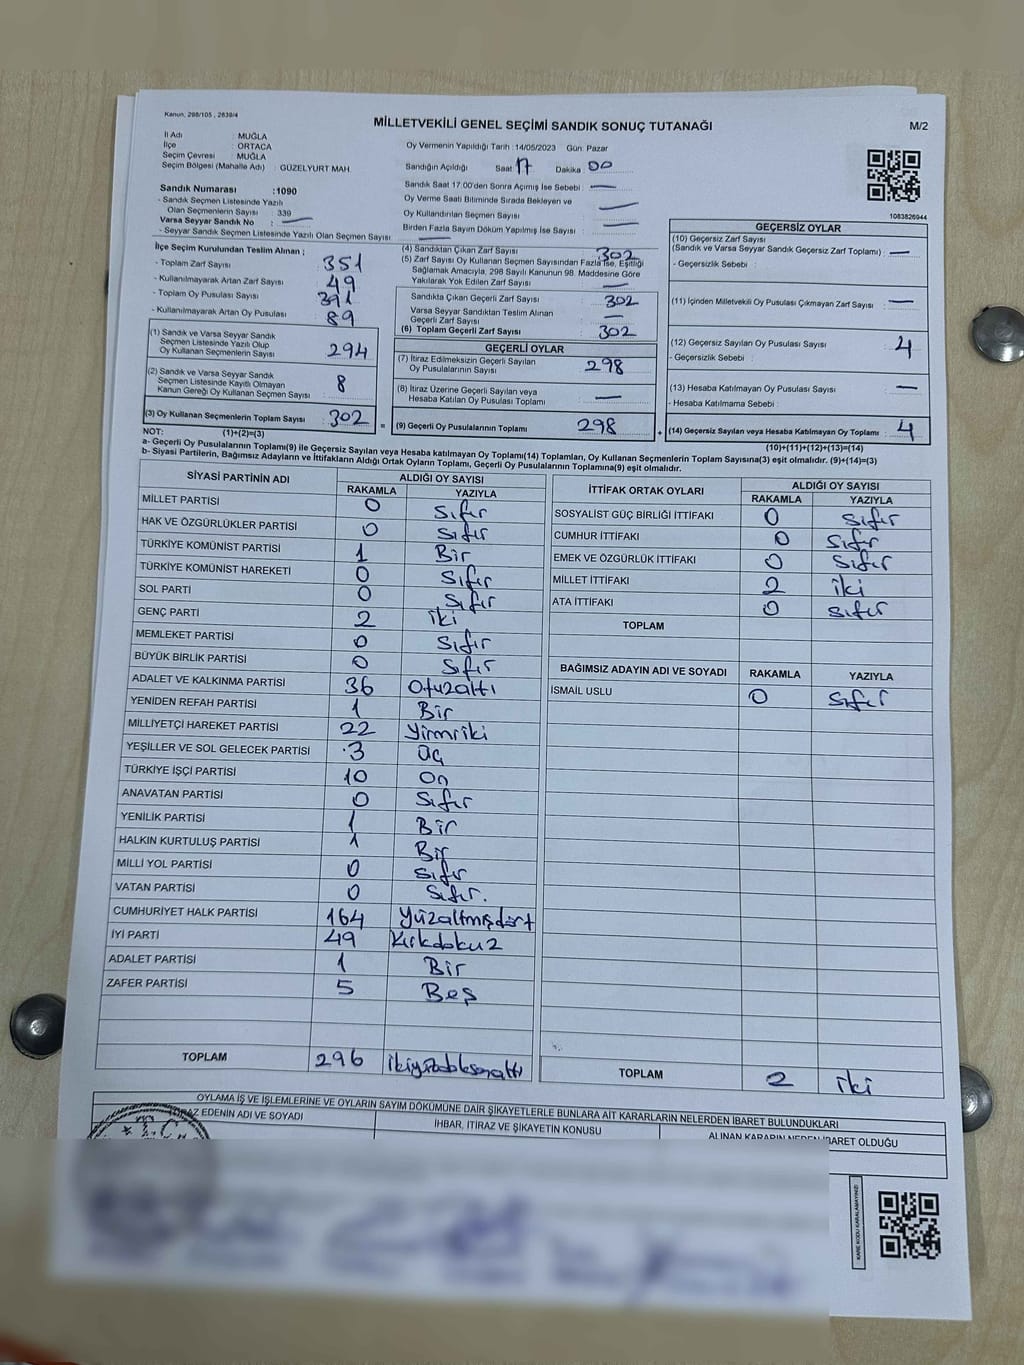 Kanun, 298/105 , 2839/4
MİLLETVEKİLİ GENEL SEÇİMİ SANDIK SONUÇ TUTANAĞI
M/2
İl Adı : MUĞLA
İlçe : ORTACA
Seçim Çevresi : MUĞLA
Seçim Bölgesi (Mahalle Adı) : GÜZELYURT MAH.
Sandık Numarası :1090
- Sandık Seçmen Listesinde Yazılı
Olan Seçmenlerin Sayısı 339
Varsa Seyyar Sandık No : —
- Seyyar Sandık Seçmen Listesinde Yazılı Olan Seçmen Sayısı: —
Oy Vermenin Yapıldığı Tarih :14/05/2023 Gün: Pazar
Sandığın Açıldığı Saat 17 Dakika : 00
Sandık Saat 17.00'den Sonra Açımış İse Sebebi : —
Oy Verme Saati Bitiminde Sırada Bekleyen ve
Oy Kullandırılan Seçmen Sayısı : —
Birden Fazla Sayım Döküm Yapılmış İse Sayısı : —
1083826944
İlçe Seçim Kurulundan Teslim Alınan ;
- Toplam Zarf Sayısı : 351
- Kullanılmayarak Artan Zarf Sayısı : 49
- Toplam Oy Pusulası Sayısı : 391
- Kullanılmayarak Artan Oy Pusulası : 89
(1) Sandık ve Varsa Seyyar Sandık
Seçmen Listesinde Yazılı Olup
Oy Kullanan Seçmenlerin Sayısı : 294
(2) Sandık ve Varsa Seyyar Sandık
Seçmen Listesinde Kayıtlı Olmayan
Kanun Gereği Oy Kullanan Seçmen Sayısı : 8
(3) Oy Kullanan Seçmenlerin Toplam Sayısı : 302
(1)+(2)=(3)
(4) Sandıktan Çıkan Zarf Sayısı : 302
(5) Zarf Sayısı Oy Kullanan Seçmen Sayısından Fazla İse, Eşitliği
Sağlamak Amacıyla, 298 Sayılı Kanunun 98. Maddesine Göre
Yakılarak Yok Edilen Zarf Sayısı : —
Sandıkta Çıkan Geçerli Zarf Sayısı : 302
Varsa Seyyar Sandıktan Teslim Alınan
Geçerli Zarf Sayısı : —
(6) Toplam Geçerli Zarf Sayısı : 302
GEÇERLİ OYLAR
(7) İtiraz Edilmeksizin Geçerli Sayılan
Oy Pusulalarının Sayısı : 298
(8) İtiraz Üzerine Geçerli Sayılan veya
Hesaba Katılan Oy Pusulası Toplamı : —
= (9) Geçerli Oy Pusulalarının Toplamı : 298 +
GEÇERSİZ OYLAR
(10) Geçersiz Zarf Sayısı
(Sandık ve Varsa Seyyar Sandık Geçersiz Zarf Toplamı) : —
- Geçersizlik Sebebi :
(11) İçinden Milletvekili Oy Pusulası Çıkmayan Zarf Sayısı : —
(12) Geçersiz Sayılan Oy Pusulası Sayısı : 4
- Geçersizlik Sebebi :
(13) Hesaba Katılmayan Oy Pusulası Sayısı : —
- Hesaba Katılmama Sebebi :
(14) Geçersiz Sayılan veya Hesaba Katılmayan Oy Toplamı : 4
(10)+(11)+(12)+(13)=(14)
NOT:
a- Geçerli Oy Pusulalarının Toplamı(9) ile Geçersiz Sayılan veya Hesaba katılmayan Oy Toplamı(14) Toplamları, Oy Kullanan Seçmenlerin Toplam Sayısına(3) eşit olmalıdır. (9)+(14)=(3)
b- Siyasi Partilerin, Bağımsız Adayların ve İttifakların Aldığı Ortak Oyların Toplamı, Geçerli Oy Pusulalarının Toplamına(9) eşit olmalıdır.
SİYASİ PARTİNİN ADI ALDIĞI OY SAYISI
RAKAMLA YAZIYLA
MİLLET PARTİSİ 0 Sıfır
HAK VE ÖZGÜRLÜKLER PARTİSİ 0 Sıfır
TÜRKİYE KOMÜNİST PARTİSİ 1 Bir
TÜRKİYE KOMÜNİST HAREKETİ 0 Sıfır
SOL PARTİ 0 Sıfır
GENÇ PARTİ 2 iki
MEMLEKET PARTİSİ 0 Sıfır
BÜYÜK BİRLİK PARTİSİ 0 Sıfır
ADALET VE KALKINMA PARTİSİ 36 Otuzaltı
YENİDEN REFAH PARTİSİ 1 Bir
MİLLİYETÇİ HAREKET PARTİSİ 22 Yirmiiki
YEŞİLLER VE SOL GELECEK PARTİSİ 3 Üç
TÜRKİYE İŞÇİ PARTİSİ 10 On
ANAVATAN PARTİSİ 0 Sıfır
YENİLİK PARTİSİ 1 Bir
HALKIN KURTULUŞ PARTİSİ 1 Bir
MİLLİ YOL PARTİSİ 0 Sıfır
VATAN PARTİSİ 0 Sıfır.
CUMHURİYET HALK PARTİSİ 164 Yüzaltmışdört
İYİ PARTİ 49 Kırkdokuz
ADALET PARTİSİ 1 Bir
ZAFER PARTİSİ 5 Beş
TOPLAM 296
İTTİFAK ORTAK OYLARI ALDIĞI OY SAYISI
RAKAMLA YAZIYLA
SOSYALİST GÜÇ BİRLİĞİ İTTİFAKI 0 Sıfır
CUMHUR İTTİFAKI 0 Sıfır
EMEK VE ÖZGÜRLÜK İTTİFAKI 0 Sıfır
MİLLET İTTİFAKI 2 iki
ATA İTTİFAKI 0 Sıfır
TOPLAM
BAĞIMSIZ ADAYIN ADI VE SOYADI RAKAMLA YAZIYLA
İSMAİL USLU 0 Sıfır
TOPLAM 2 iki
OYLAMA İŞ VE İŞLEMLERİNE VE OYLARIN SAYIM DÖKÜMÜNE DAİR ŞİKAYETLERLE BUNLARA AİT KARARLARIN NELERDEN İBARET BULUNDUKLARI
EDENİN ADI VE SOYADI
İHBAR, İTİRAZ VE ŞİKAYETİN KONUSU
ALINAN KARARIN NEDEN İBARET OLDUĞU
T.C.
KARE KODU KARALAMAYINIZ!